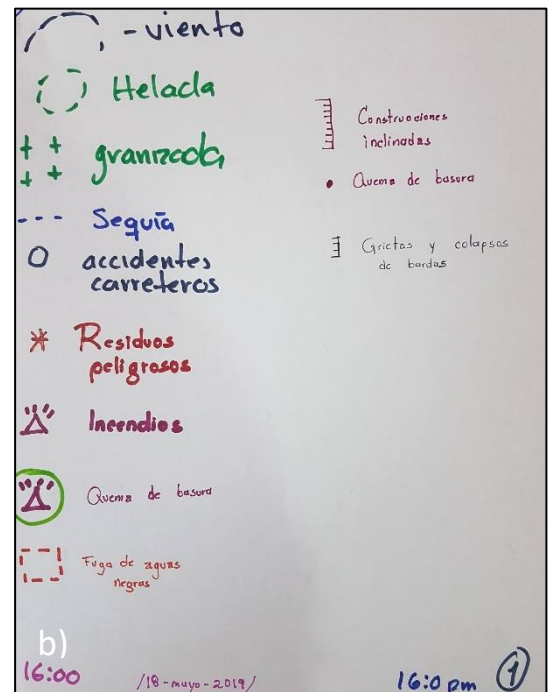 - viento
Helada
granizada
Sequía
accidentes
carreteros
Residuos
peligrosos
Incendios
Quema de basura
Fuga de aguas
negras
Construcciones
inclinadas
Quema de basura
Grietas y colapsos
de bardas
b)
16:00
/18-mayo-2019/
16:0 pm
1